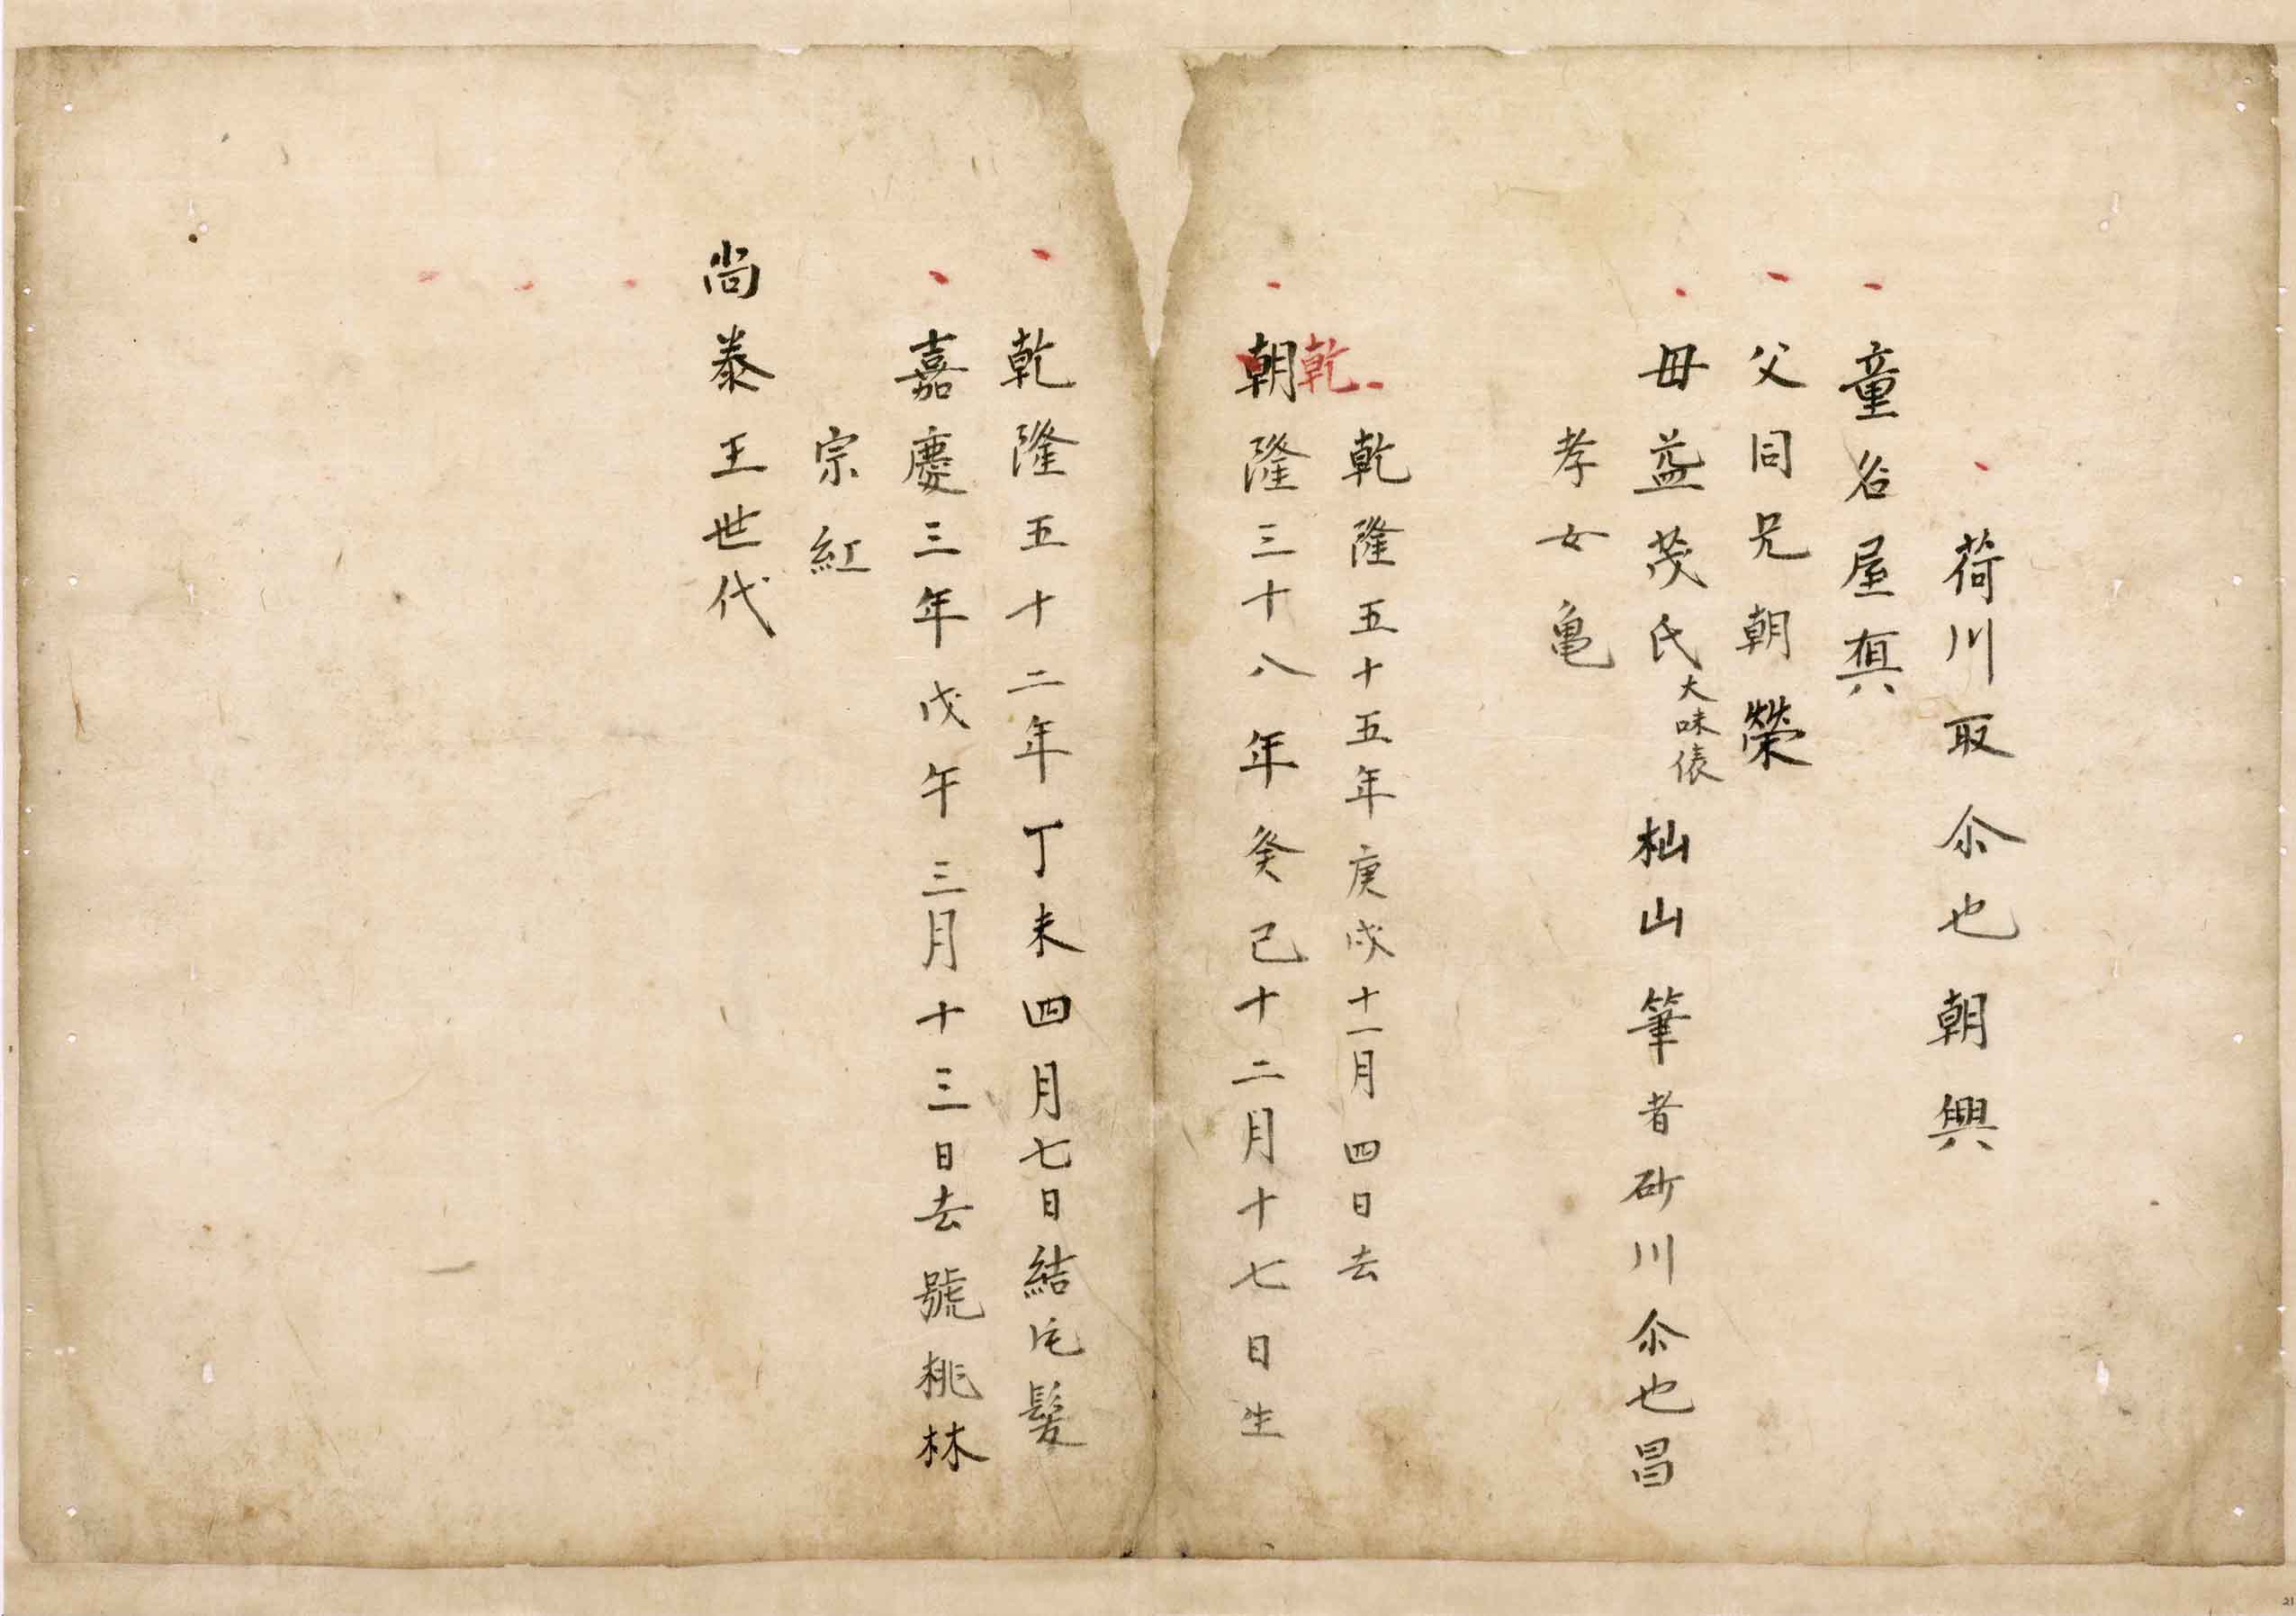 荷川取尒也朝興
童名屋真
父同兄朝榮
母益茂氏大味俵杣山筆者砂川尒也昌
孝女亀
乾隆五十五年庚戌十一月四日去
乾
朝隆三十八年癸巳十二月十七日生
乾隆五十二年丁未四月七日結片髪
嘉慶三年戊午三月十三日去號桃林
宗紅
尚泰王世代